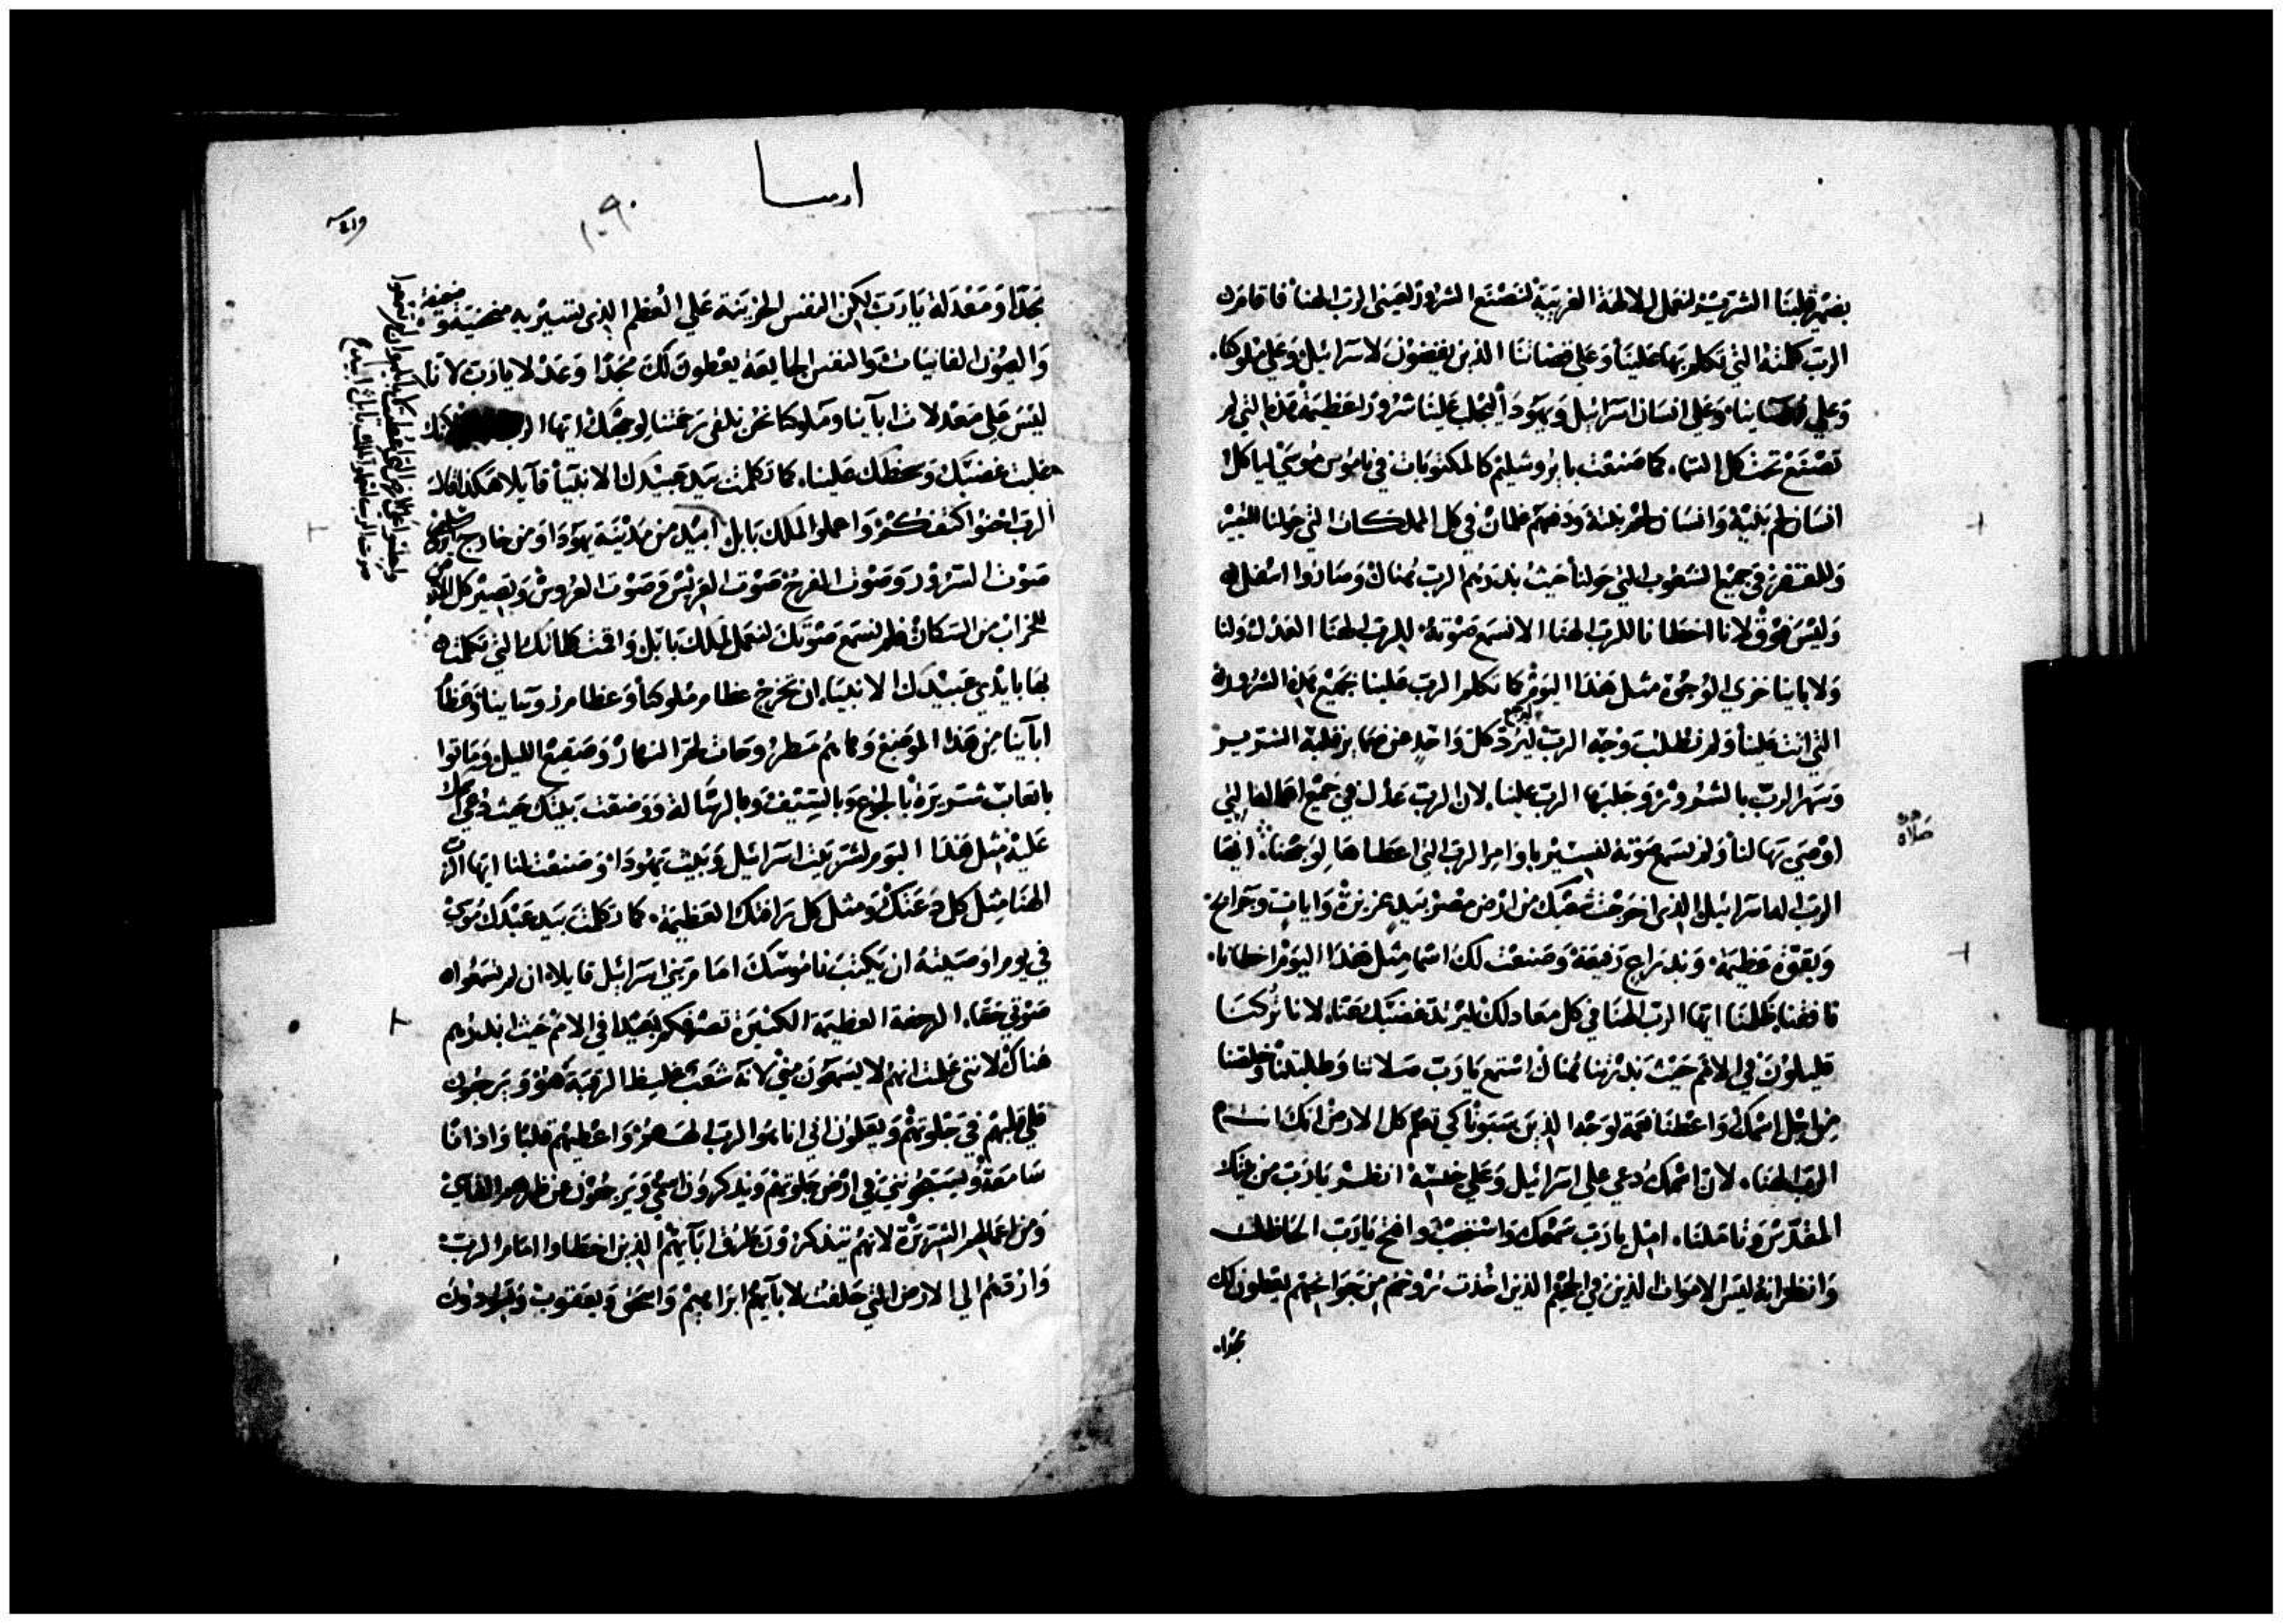 بضمير قلبنا الشرير لنعمل للالهة الغريبة لنصنع الشرور لعيني الرب الهنا فاقام
الرب كلمته التي تكلم بها علينا وعلي قضاتنا الذين يقضون لاسرائيل وعلي ملوكنا
وعلي وعلي انسان اسرائيل ويهودا ليجلب علينا شرور اعظيمة هذه التي لم
تصنع تحت كل السما كما صنعت بايروشليم كالمكتوبات في ناموس موسي لياكل
انسان لحم بنيه وانسان لحم بناته ودفعهم في كل المملكات التي حولنا للتعير
في جميع الشعوب التي حولنا حيث بددهم الرب هناك وصاروا اسفل
وليس فوق لانا اخطانا للرب الهنا الا نسمع صوته للرب الهنا العدل ولنا
ولابائنا خزي الوجوه مثل هذا اليوم كما تكلم الرب علينا جميع هذه الشرور
التي اتت علينا ولم نطلب وجه الرب ليرد كل واحد من ضماير قلبه الشرير
وسهر الرب بالشرور وجلبها الرب علينا لان الرب عدل في جميع اعماله التي
اوصي بها لنا ولم نسمع صوته لنسير باوامر الرب التي اعطاها لوجهنا ايها
الرب اله اسرائيل الذي اخرجت شعبك من ارض مصر بيد عزيزة وايات وجرايح
وبقوة عظيمة وبذراع رفيعة وصنعت لك اسما مثل هذا اليوم اخطانا
نافقنا ظلمنا ايها الرب الهنا في كل معادلك ليرتد غضبك عنا لانا تركنا
قليلون في الامم حيث بددتنا هناك استمع يارب صلاتنا وطلبتنا وخلصنا
من اجل اسمك واعطنا نعمة لوجه الذين سبونا كي تعلم كل الارض انك انت
الرب الهنا لان اسمك دعي علي اسرائيل وعلي جنسه انظر يارب من بيتك
المقدس وتاملنا امل يارب سمعك واستجب وافتح يارب الحاظك
وانظر انه ليس الاموات الذين في الجحيم الذين اخذت روحهم من جوانحهم يعطون لك
مجدا
صلاة
ارميا
١٠٩٠
مجدا ومعدلة يارب لكن النفس الحزينة علي العظم الذي تسير به منحنية
ضعيفة
والعيون الفانيات والنفس الجايعة يعطون لك مجدا وعدلا يارب لانا
ليس علي معدلات ابآينا وملوكنا نحن نلقي رحمتنا لوجهك ايها لانك
جلبت غضبك وسخطك علينا كما تكلمت بيد عبيدك الانبيآ قآيلا هكذا قال
الرب احنوا كتفكم واعملوا لملك بابل ابيد من مدينة يهودا ومن خارج
صوت السرور وصوت الفرح صوت العريس وصوت العروس ويصير كل
للخراب من السكان فلم نسمع صوتك لنعمل لملك بابل واقمت كلماتك التي تكلمت
بها بايدي عبيدك الانبيا ان تخرج عظام ملوكنا وعظام
ابآينا من هذا الموضع وها هم مطروحات لحر النهار وصقيع الليل وماتوا
باتعاب شريرة بالجوع وبالسيف ووضعت بيتك حيث دعي اسمك
عليه مثل هذا اليوم لشر بيت اسرائيل وبيت يهودا وصنعت لنا ايها الرب
الهنا مثل كل دعتك ومثل كل رافتك العظيمة كما تكلمت بيد عبدك موسي
في يوم اوصيته ان يكتب ناموسك امام بني اسرائيل قايلا ان لم تسمعوا
صوتي حقا العظيمة الكثيرة بعيدا في الامم حيث ابددهم
هناك لانني علمت انهم لا يسمعون مني لانه شعب غليظ الرقبة هو ويرجعون
علي قلبهم في جلوتهم ويعلمون اني انا هو الرب الههم واعطيهم قلبا واذانا
سامعة ويسبحونني في ارض جلوتهم ويذكرون اسمي ويرجعون عن ظهرهم القاسي
ومن اعمالهم الشريرة لانهم يتذكرون طريق ابآيهم الذين اخطاوا امام الرب
واردهم الي الارض التي حلفت لابآيهم ابراهيم واسحق ويعقوب